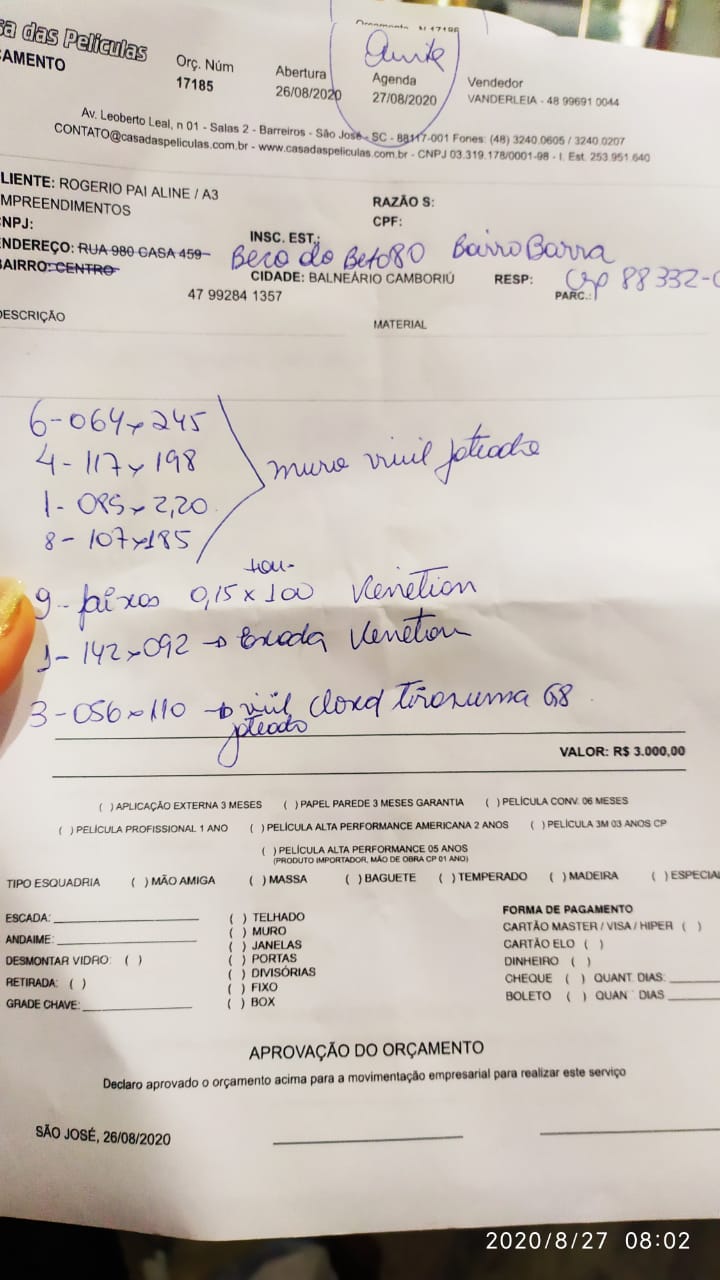 sa das Películas
ÇAMENTO
Orçamento N 17185
Orç. Núm
17185
Abertura
26/08/2020
Agenda
27/08/2020
Vendedor
VANDERLEIA - 48 99691 0044
Av. Leoberto Leal, n 01 - Salas 2 - Barreiros - São José - SC - 88117-001 Fones: (48) 3240.0605 / 3240.0207
CONTATO@casadaspeliculas.com.br - www.casadaspeliculas.com.br - CNPJ 03.319.178/0001-98 - I. Est. 253.951.640
LIENTE: ROGERIO PAI ALINE / A3
MPREENDIMENTOS
RAZÃO S:
CNPJ:
CPF:
INSC. EST.:
ENDEREÇO: RUA 980 CASA 459
Beco do Beto 80 Bairro Barra
BAIRRO: CENTRO
CIDADE: BALNEÁRIO CAMBORIÚ
RESP:
Cep 88332-0
47 99284 1357
PARC.:
DESCRIÇÃO
MATERIAL
6-064x245
4-117x198
muro vinil jateado
1-085x2,20
8-107x185
9-faixas 0,15x100 Venetian
1-142x092 → Venetian
3-056x110 → vinil
jateado
VALOR: R$ 3.000,00
( ) APLICAÇÃO EXTERNA 3 MESES ( ) PAPEL PAREDE 3 MESES GARANTIA ( ) PELÍCULA CONV. 06 MESES
( ) PELÍCULA PROFISSIONAL 1 ANO ( ) PELÍCULA ALTA PERFORMANCE AMERICANA 2 ANOS ( ) PELÍCULA 3M 03 ANOS CP
( ) PELÍCULA ALTA PERFORMANCE 05 ANOS
(PRODUTO IMPORTADOR, MÃO DE OBRA CP 01 ANO)
TIPO ESQUADRIA ( ) MÃO AMIGA ( ) MASSA ( ) BAGUETE ( ) TEMPERADO ( ) MADEIRA ( ) ESPECIAL
ESCADA:
ANDAIME:
DESMONTAR VIDRO: ( )
RETIRADA: ( )
GRADE CHAVE:
( ) TELHADO
( ) MURO
( ) JANELAS
( ) PORTAS
( ) DIVISÓRIAS
( ) FIXO
( ) BOX
FORMA DE PAGAMENTO
CARTÃO MASTER / VISA / HIPER ( )
CARTÃO ELO ( )
DINHEIRO ( )
CHEQUE ( ) QUANT. DIAS:
BOLETO ( ) QUAN DIAS
APROVAÇÃO DO ORÇAMENTO
Declaro aprovado o orçamento acima para a movimentação empresarial para realizar este serviço
SÃO JOSÉ, 26/08/2020
2020/8/27 08:02